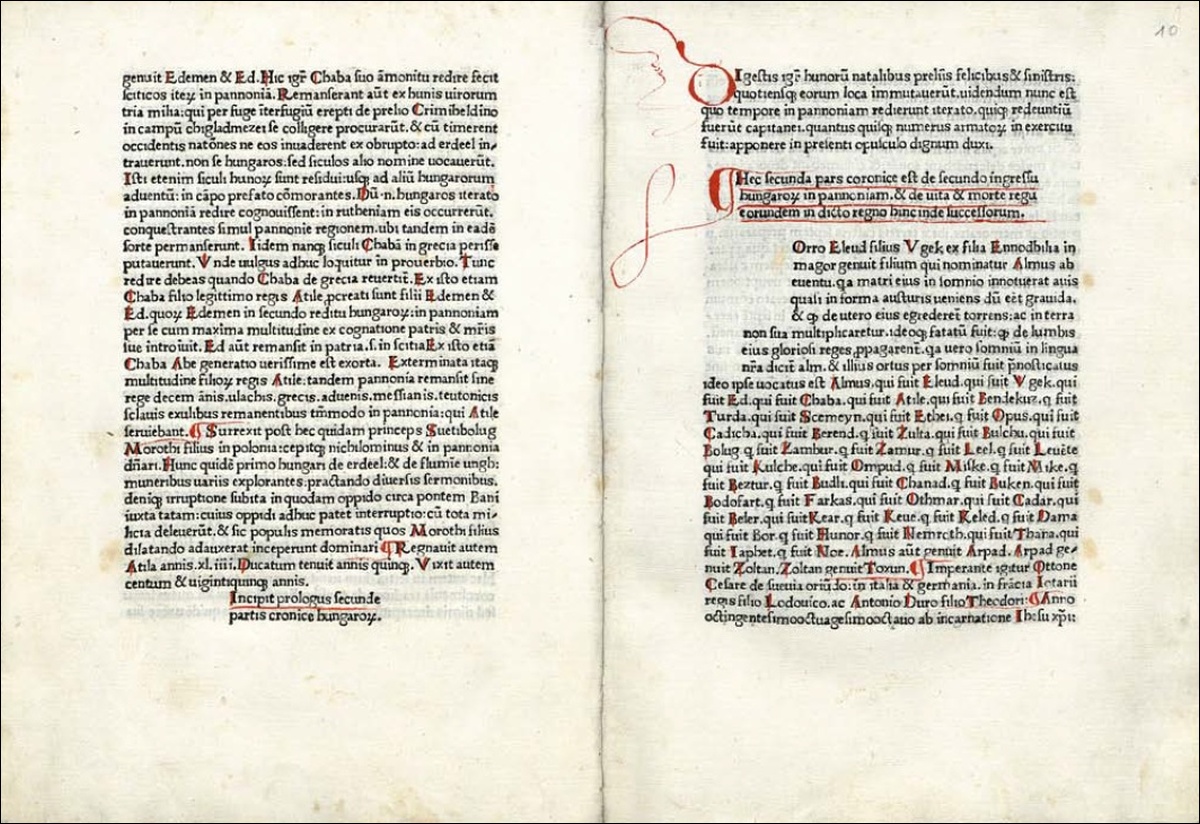 genuit Edemen & Ed. Hic igr̃ Chaba suo āmonitu redire fecit
sciticos iteꝝ in pannoniā. Remanserant aūt ex hunis uirorum
tria milia: qui per fuge īterfugiū erepti de prelio Crimiheldino
in campū chigladmezei se colligere procurarūt. & cū timerent
occidentis natōnes ne eos inuaderent ex obrupto: ad erdeel in⸗
trauerunt. non se hungaros: sed siculos alio nomine uocauerūt.
Isti etenim siculi hunoꝝ sunt residui: usqꝫ ad aliū hungarorum
aduentū: in cāpo prefato cōmorantes. Dū.n. hungaros iterato
in pannoniā redire cognouissent: in rutheniam eis occurrerūt.
conquestrantes simul pannonie regionem. ubi tandem in eadē
sorte permanserunt. Iidem nanqꝫ siculi Chabā in grecia perisse
putauerunt. Vnde uulgus adhuc loquitur in prouerbio. Tunc
redire debeas quando Chaba de grecia reuertit̃. Ex isto etiam
Chaba filio legittimo regis Atile ꝓcreati sunt filii Edemen &
Ed. quoꝝ Edemen in secundo reditu hungaroꝝ: in pannoniam
per se cum maxima multitudine ex cognatione patris & mr̃is
sue introiuit. Ed aūt remansit in patria. s. in scitia Ex isto etiā
Chaba Abe generatio uerissime est exorta. Exterminata itaqꝫ
multitudine filioꝝ regis Atile: tandem pannonia remansit sine
rege decem ānis. ulachis. grecis. aduenis. messianis. teutonicis
sclauis exulibus remanentibus tm̄modo in pannonia: qui Atile
seruiebant. ¶ Surrexit post hec quidam princeps Suetibolug
Morothi filius in polonia: cepitqꝫ nichilominus & in pannonia
dñari. Hunc quidē primo hungari de erdeel: & de flumīe ungh:
muneribus uariis explorantes: practando diuersis sermonibus.
deniqꝫ irruptione subita in quodam oppido circa pontem Bani
iuxta tatam: cuius oppidi adhuc patet interruptio: cū tota mi⸗
licia deleuerūt. & sic populis memoratis quos Morothi filius
dilatando adauxerat inceperunt dominari ¶ Regnauit autem
Atila annis. xl. iiii. Ducatum tenuit annis quinqꝫ. Vixit autem
centum & uigintiquinqꝫ annis.
Incipit prologus secunde
partis cronice hungaroꝝ.
10
DIgestis igr̃ hunorū natalibus preliis felicibus & sinistris:
quotiensqꝫ eorum loca immutauerūt. uidendum nunc est
quo tempore in pannoniam redierunt iterato. quiqꝫ redeuntiū
fuerūt capitanei. quantus quisqꝫ numerus armatoꝝ in exercitu
fuit: apponere in presenti opusculo dignum duxi.
¶ Hec secunda pars coronice est de secundo ingressu
hungaroꝝ in pannoniam. & de uita & morte regū
eorundem in dicto regno hinc inde successorum.
Orro Eleud filius Vgek ex filia Ennodbilia in
magor genuit filium qui nominatur Almus ab
euentu. qa matri eius in somnio innotuerat auis
quasi in forma austuris ueniens dū eēt grauida.
& ꝙ de utero eius egrederet̃ torrens: ac in terra
non sua multiplicaretur. ideoqꝫ fatatū fuit: ꝙ de lumbis
eius gloriosi reges ꝓpagarent̃. qa uero somniū in lingua
nr̃a dicit̃ alm. & illius ortus per somniū fuit p̄nosticatus
ideo ipse uocatus est Almus. qui fuit Eleud. qui fuit Vgek. qui
fuit Ed. qui fuit Chaba. qui fuit Atile. qui fuit Bendekuz. q̄ fuit
Turda. qui fuit Scemeyn. qui fuit Ethei. q̄ fuit Opus. qui fuit
Cadicha. qui fuit Berend. q̄ fuit Zulta. qui fuit Bulchu. qui fuit
Bolug. q̄ fuit Zambur. q̄ fuit Zamur. q̄ fuit Leel. q̄ fuit Leuēte
qui fuit Kulche. qui fuit Ompud. q̄ fuit Miske. q̄ fuit Mike. q̄
fuit Beztur. q̄ fuit Budli. qui fuit Chanad. q̄ fuit Buken. qui fuit
Bodofart. q̄ fuit Farkas. qui fuit Othmar. qui fuit Cadar. qui
fuit Beler. qui fuit Kear. q̄ fuit Keue. q̄ fuit Keled. q̄ fuit Dama
qui fuit Bor. q̄ fuit Hunor. q̄ fuit Nemroth. qui fuit Thana. qui
fuit Iaphet. q̄ fuit Noe. Almus aūt genuit Arpad. Arpad ge⸗
nuit Zoltan. Zoltan genuit Toxun. ¶ Imperante igitur Ottone
Cesare de sueuia oriūdo: in italia & germania. in frācia Lotarii
regis filio Lodouico. ac Antonio Duro filio Theodori: ¶ Anno
octingentesimooctuagesimooctauo ab incarnatione Ihesu xp̄i: